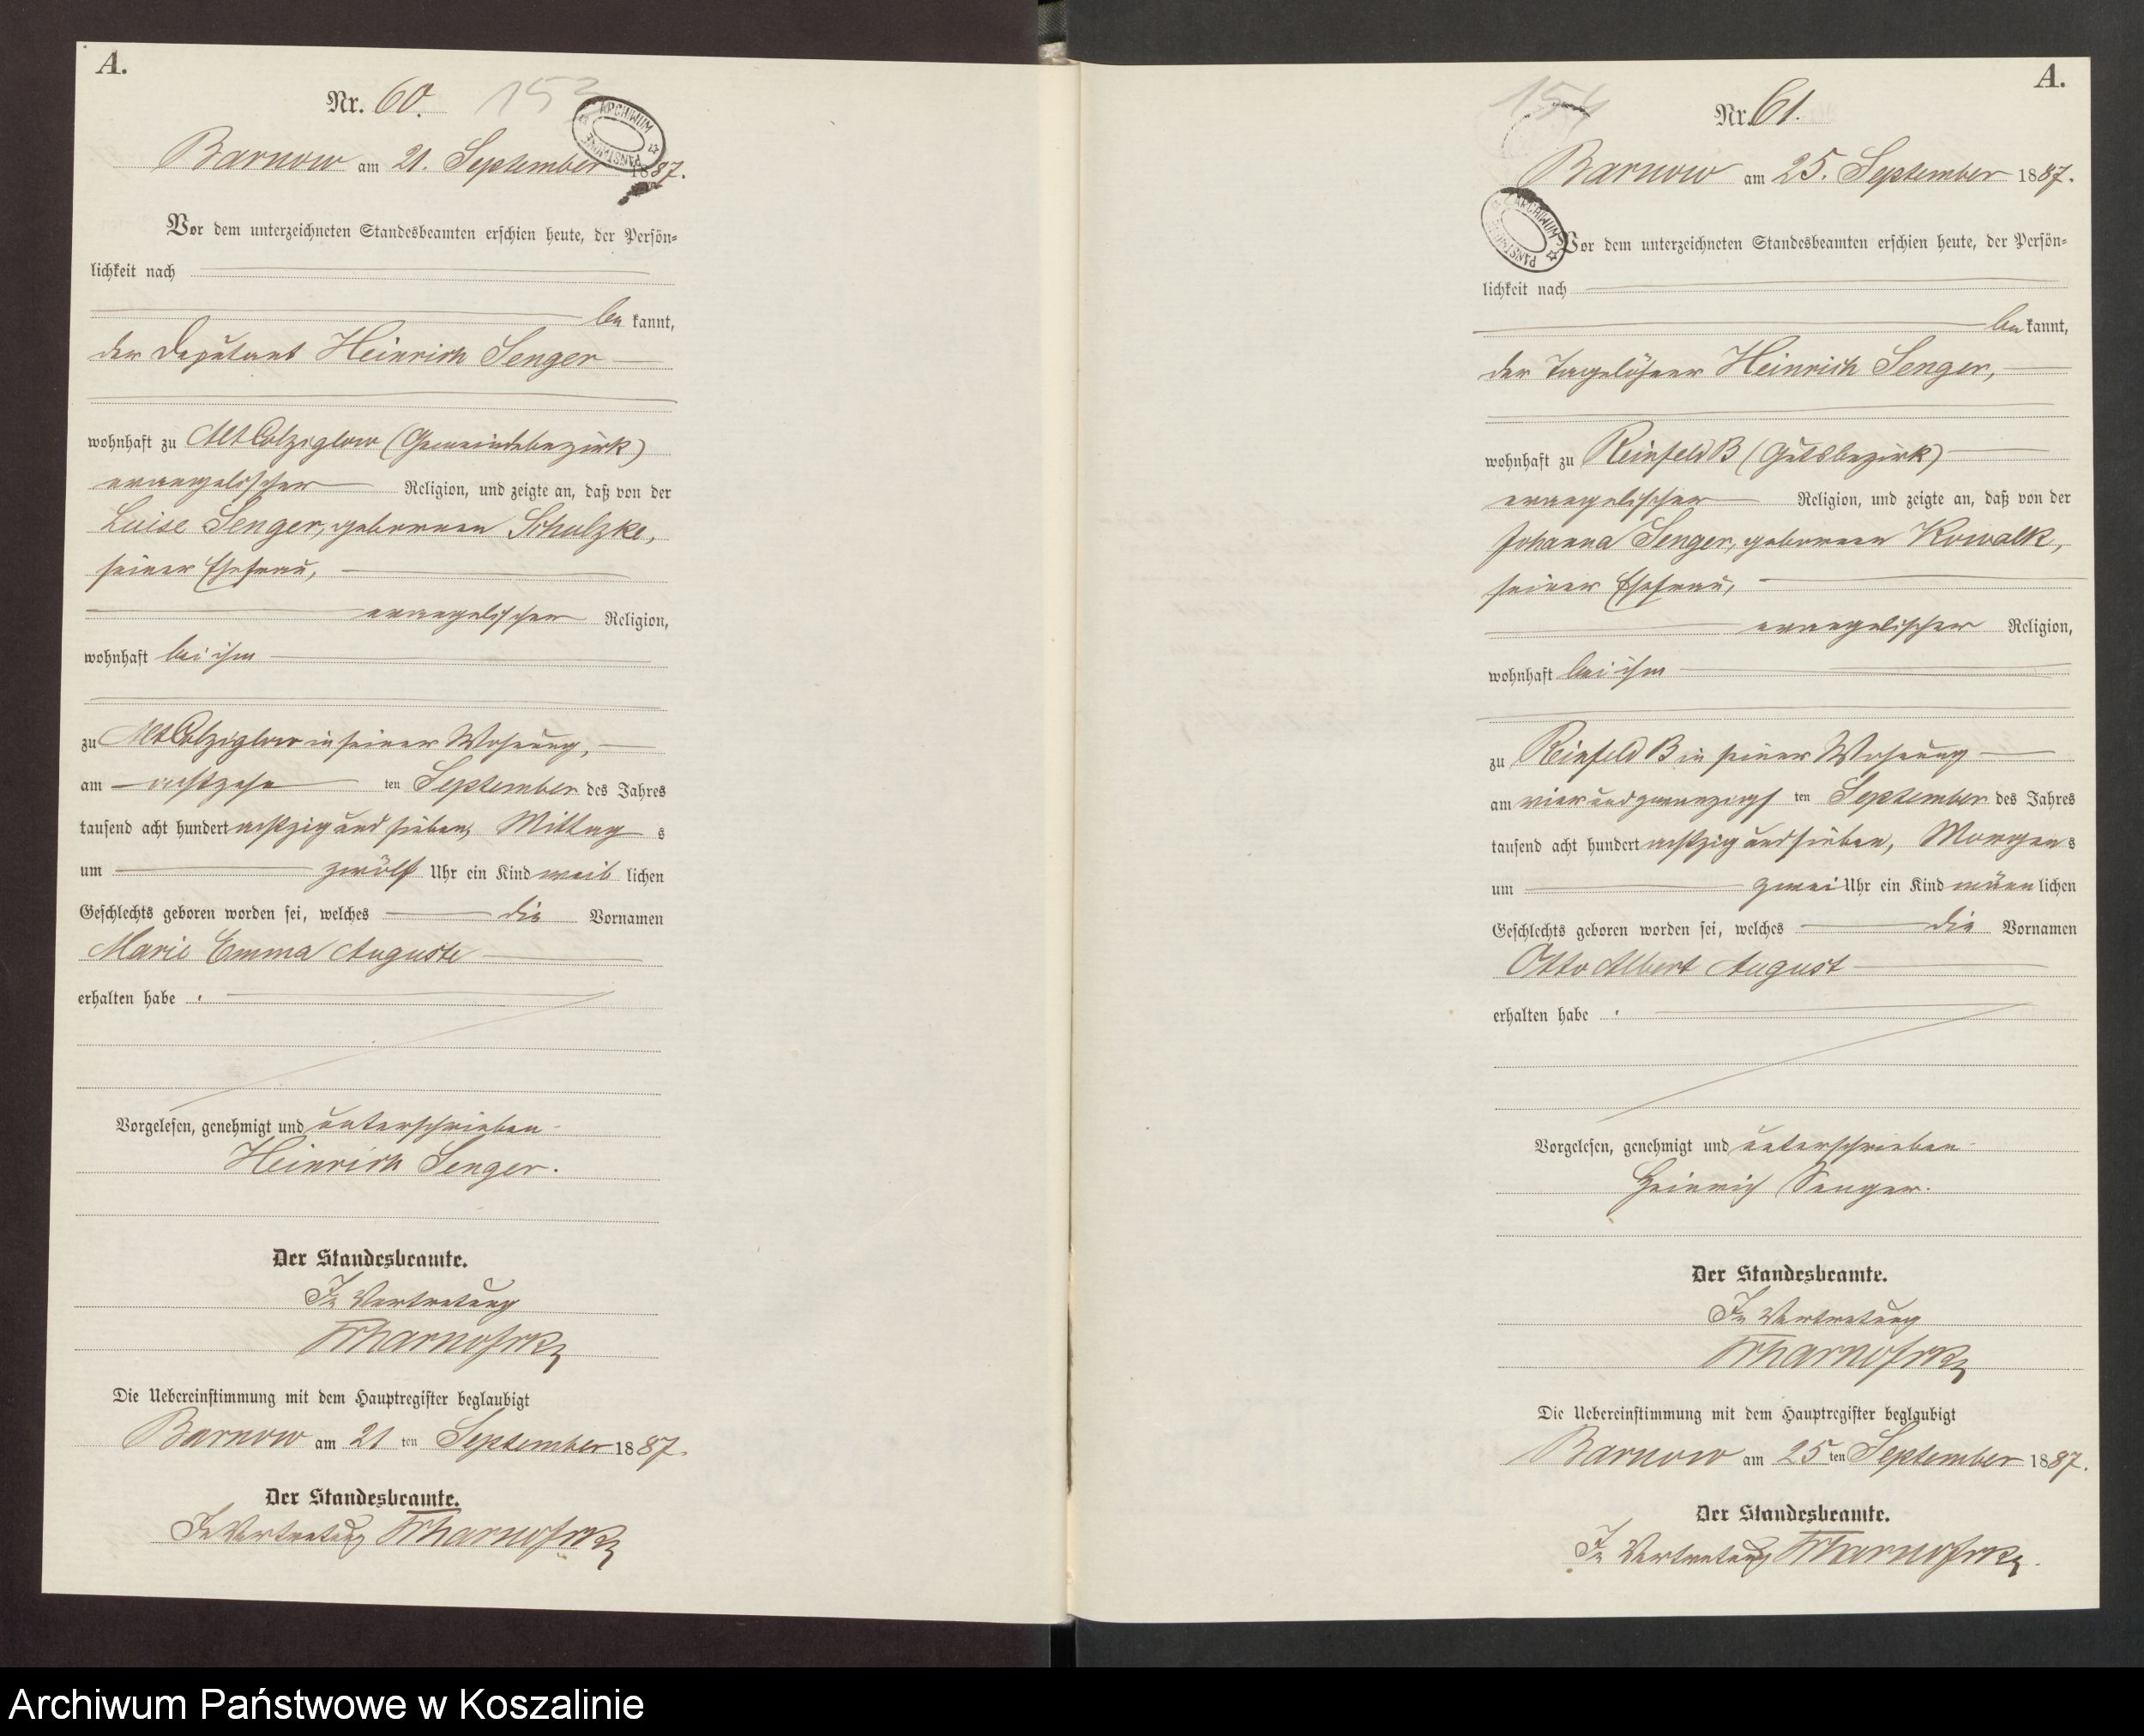 A.
Nr. 60.
153
ARCHIWUM PAŃSTWOWE
Barnow am 21. September 1887.
Vor dem unterzeichneten Standesbeamten erschien heute, der Persön=
lichkeit nach
be kannt,
der Deputant Heinrich Senger
wohnhaft zu Alt Colziglow (Gemeindebezirk)
evangelischer Religion, und zeigte an, daß von der
Luise Senger, geborenen Schulzke,
seiner Ehefrau,
evangelischer Religion,
wohnhaft bei ihm
zu Alt Colziglow in seiner Wohnung,
am achtzehn ten September des Jahres
tausend acht hundert achtzig und sieben, Mittag s
um zwölf Uhr ein Kind weib lichen
Geschlechts geboren worden sei, welches die Vornamen
Marie Emma Auguste
erhalten habe .
Vorgelesen, genehmigt und unterschrieben
Heinrich Senger.
Der Standesbeamte.
In Vertretung
Die Uebereinstimmung mit dem Hauptregister beglaubigt
Barnow am 21 ten September 1887.
Der Standesbeamte.
In Vertretung
A.
154
Nr. 61.
Barnow am 25. September 1887.
ARCHIWUM PAŃSTWOWE
Vor dem unterzeichneten Standesbeamten erschien heute, der Persön=
lichkeit nach
be kannt,
der Tagelöhner Heinrich Senger,
wohnhaft zu Reinfeld B (Gutsbezirk)
evangelischer Religion, und zeigte an, daß von der
Johanna Senger, geborenen Kowalk,
seiner Ehefrau,
evangelischer Religion,
wohnhaft bei ihm
zu Reinfeld B in seiner Wohnung
am vier und zwanzigs ten September des Jahres
tausend acht hundert achtzig und sieben, Morgen s
um zwei Uhr ein Kind männ lichen
Geschlechts geboren worden sei, welches die Vornamen
Otto Albert August
erhalten habe .
Vorgelesen, genehmigt und unterschrieben
Heinrich Senger.
Der Standesbeamte.
In Vertretung
Die Uebereinstimmung mit dem Hauptregister beglaubigt
Barnow am 25 ten September 1887.
Der Standesbeamte.
In Vertretung
Archiwum Państwowe w Koszalinie